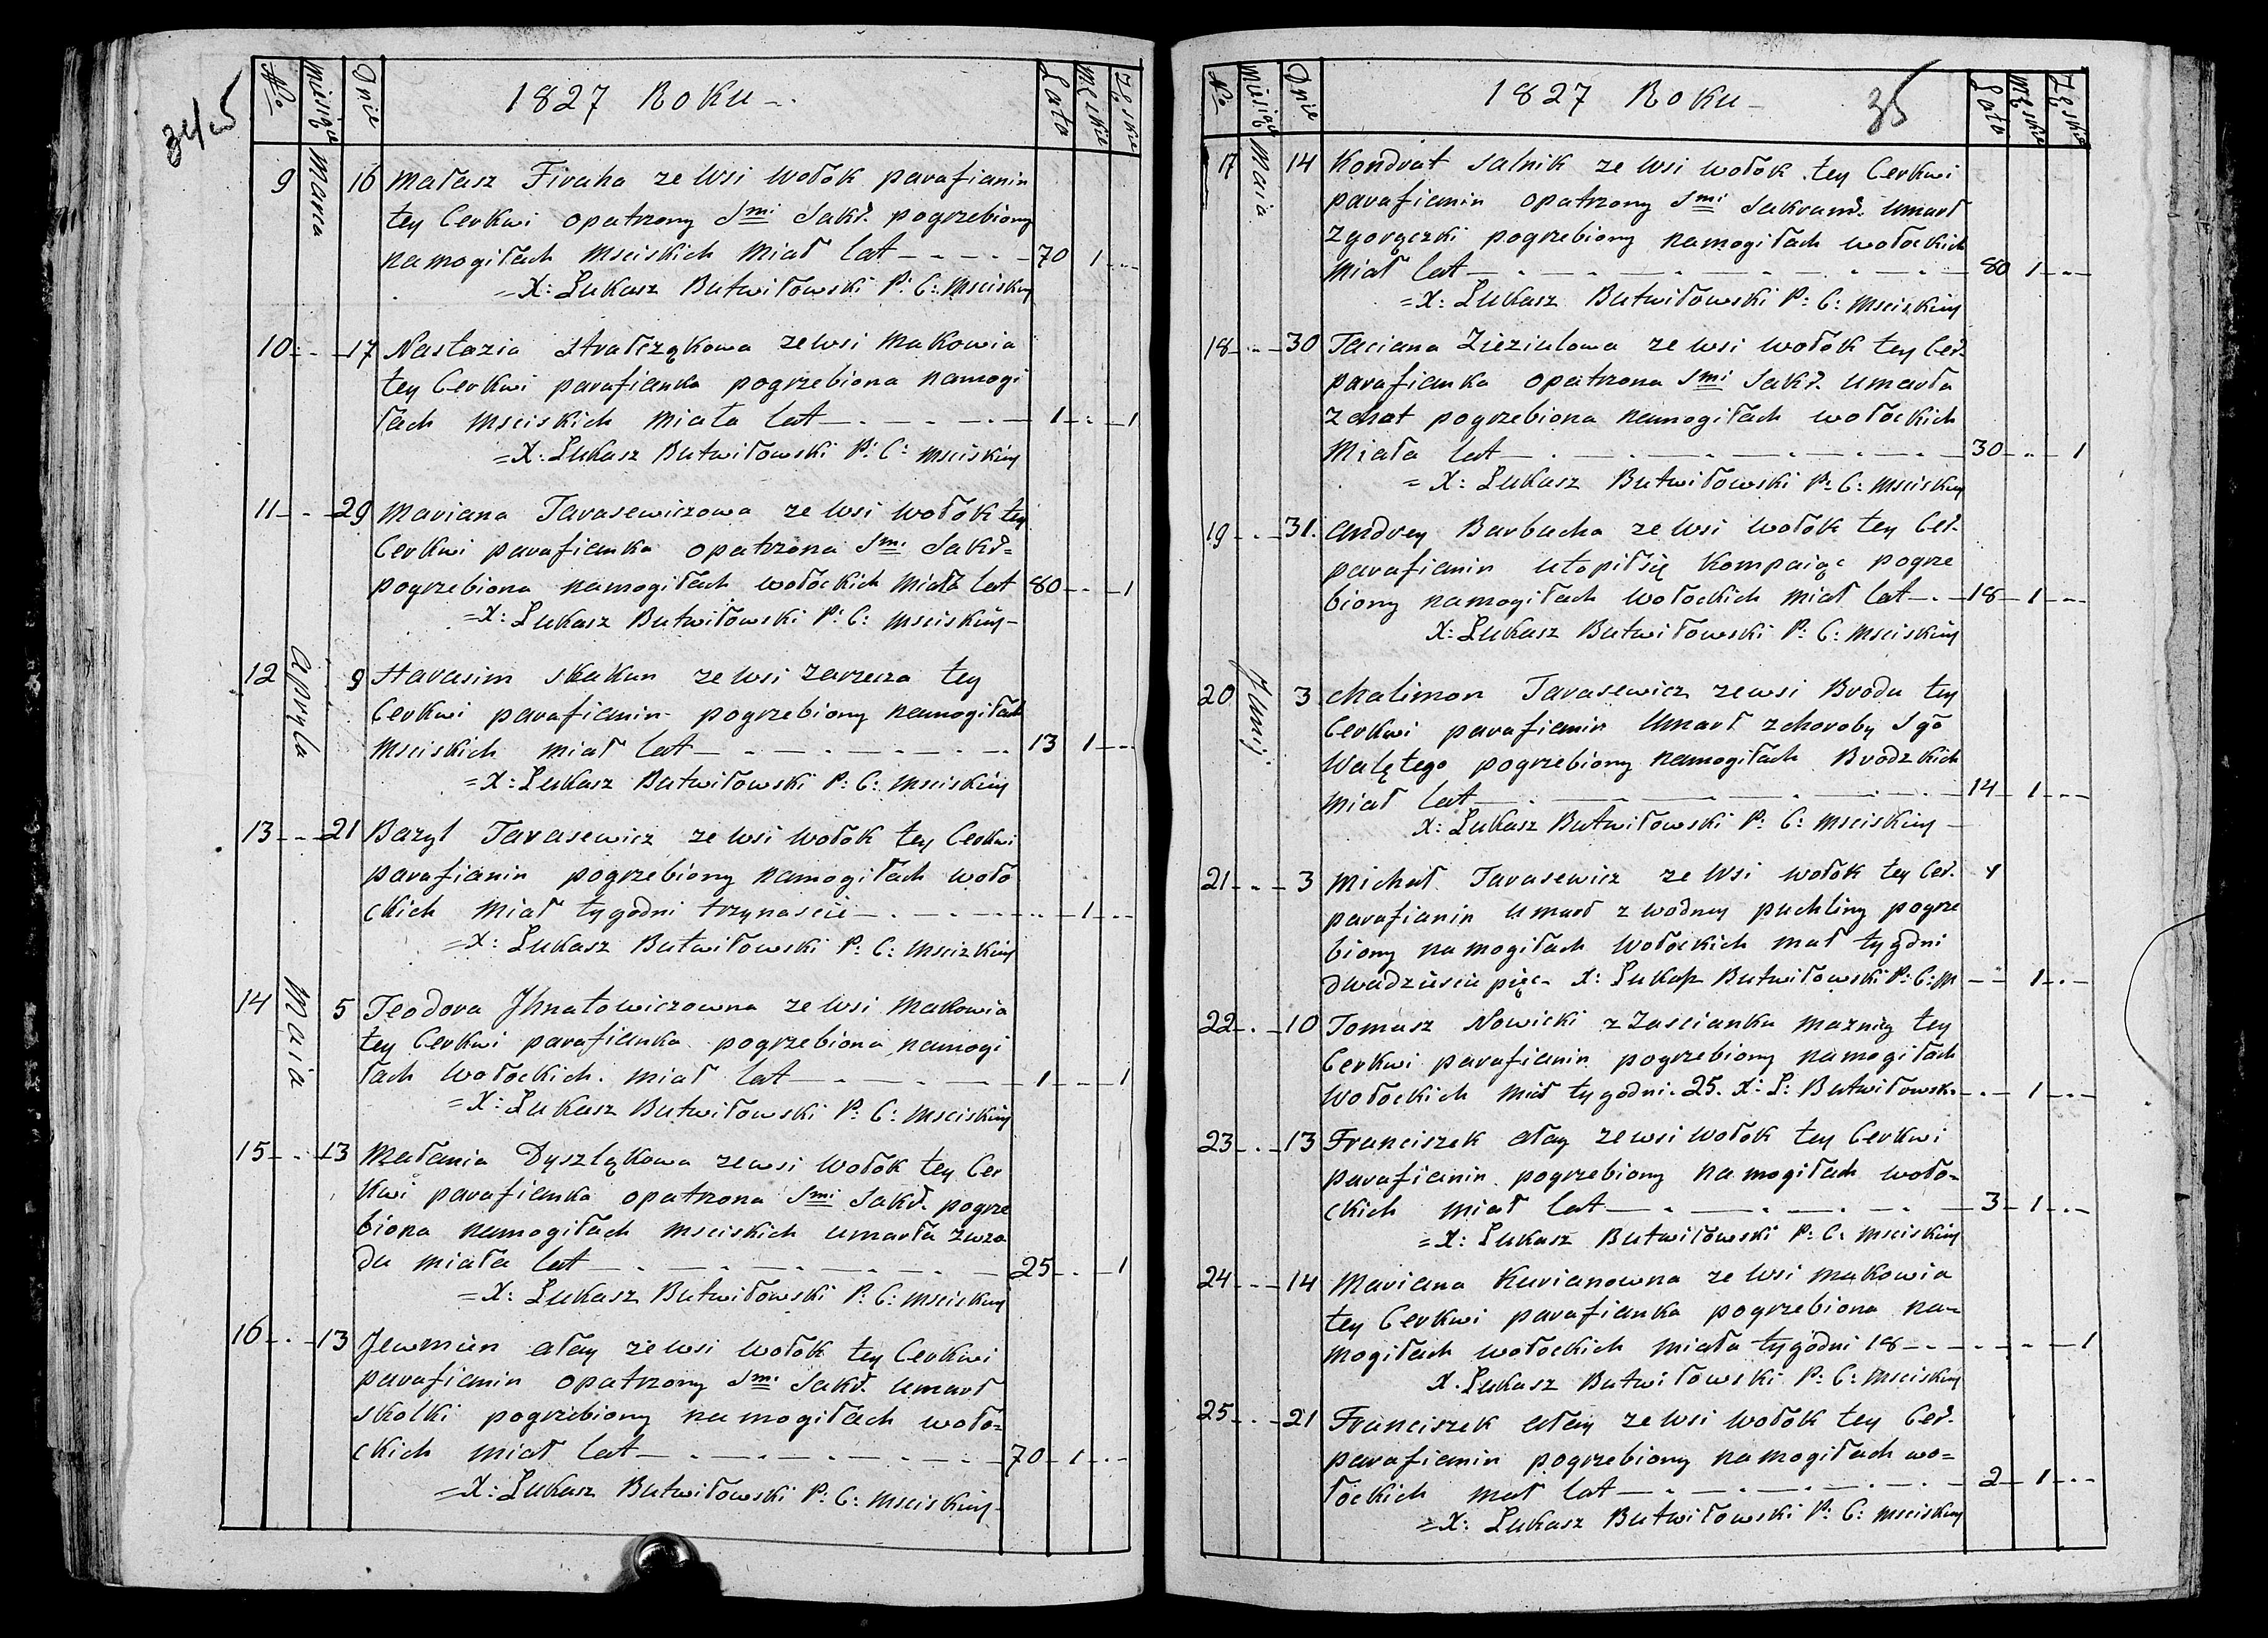 No Miesiąc Dnie 1827 Roku Lata Męskie Żęskie
9 Marca 16 Małasz Firaha ze wsi Wołok parafianin
tey Cerkwi opatrzony Smi Sakr. pogrzebiony
namogiłach Msciskich miał lat 70 1
=X: Łukasz Butwiłowski P: C: Msciskiey
10 17 Nastazia Strałcząkowa ze wsi Makowia
tey Cerkwi parafianka pogrzebiona namogi
łach Msciskich miała lat 1 1
=X: Łukasz Butwiłowski P: C: Msciskiey
11 29 Mariana Tarasewiczowa ze wsi Wołok tey
Cerkwi parafianka opatrzona Smi Sakr=
pogrzebiona namogiłach Wołockich miała lat 80 1
=X: Łukasz Butwiłowski P: C: Msciskiey
12 Apryla 9 Harasim Skakun ze wsi Zarzecza tey
Cerkwi parafianin pogrzebiony namogiłach
Msciskich miał lat 13 1
=X: Łukasz Butwiłowski P: C: Msciskiey
13 21 Bazyl Tarasewicz ze wsi Wołok tey Cerkwi
parafianin pogrzebiony namogiłach Woło
ckich miał tygodni trzynascie 1
=X: Łukasz Butwiłowski P: C: Msciskiey
14 Maia 5 Teodora Jhnatowiczowna ze wsi Makowia
tey Cerkwi parafianka pogrzebiona namogi
łach Wołockich. miał lat 1 1
=X: Łukasz Butwiłowski P: C: Msciskiey
15 13 Małania Dyszląkowa ze wsi Wołok tey Cer
kwi parafianka opatrzona Smi Sakr. pogrze
biona namogiłach Msciskich umarła zwzo
du miała lat 25 1
=X: Łukasz Butwiłowski P: C: Msciskiey
16 13 Jewmien ałay ze wsi Wołok tey Cerkwi
parafianin opatrzony Smi Sakr. umarł
skolki pogrzebiony namogiłach woło=
ckich miał lat 70 1
=X: Łukasz Butwiłowski P: C: Msciskiey
No Miesiąc Dnie 1827 Roku 35 Lata Męskie Żęskie
17 Maia 14 Kondrat Salnik ze wsi Wołok tey Cerkwi
parafianin opatrzony Smi Sakram. umarł
zgorączki pogrzebiony namogiłach wołockich
miał lat 80 1
=X: Łukasz Butwiłowski P: C: Msciskiey
18 30 Taciana Zieziulowa ze wsi Wołok tey Cer.
parafianka opatrzona Smi Sakr. umarła
zchat pogrzebiona namogiłach wołockich
Miała lat 30 1
=X: Łukasz Butwiłowski P: C: Msciskiey
19 31. Andrey Barbucha ze wsi Wołok tey Cer.
parafianin utopiłsię kompaiąc pogrze
biony namogiłach Wołockich miał lat 18 1
X: Łukasz Butwiłowski P: C: Msciskiey
20 Junij 3 Chalimon Tarasewicz ze wsi Brodu tey
Cerkwi parafianin Umarł zchoroby Sgo
Walętego pogrzebiony namogiłach Brodzkich
miał lat 14 1
X: Łukasz Butwiłowski P: C: Msciskiey
21 3 Michał Tarasewicz ze wsi Wołok tey Cer.
parafianin umarł zwodney puchliny pogrze
biony namogiłach Wołockich mał tygdni
dwadziescia pięc X: Łukasz Butwiłowski P: C: M 1
22 10 Tomasz Nowicki z Zascianku Mazniey tey
Cerkwi parafianin pogrzebiony namogiłach
Wołockich mił tygodni. 25. X: Ł: Butwiłowsk. 1
23 13 Franciszek ałay ze wsi Wołok tey Cerkwi
parafianin pogrzebiony namogiłach woło=
ckich miał lat 3 1
=X: Łukasz Butwiłowski P: C: Msciskiey
24 14 Mariana Kurianowna ze wsi Makowia
tey Cerkwi parafianka pogrzebiona na=
mogiłach wołockich miała tygodni 18 1
X. Łukasz Butwiłowski P: C: Msciskiey
25 21 Franciszek ałay ze wsi Wołok tey Cer.
parafianin pogrzebiony namogiłach wo=
łockich mał lat 2 1
=X: Łukasz Butwiłowski P: C: Msciskiey